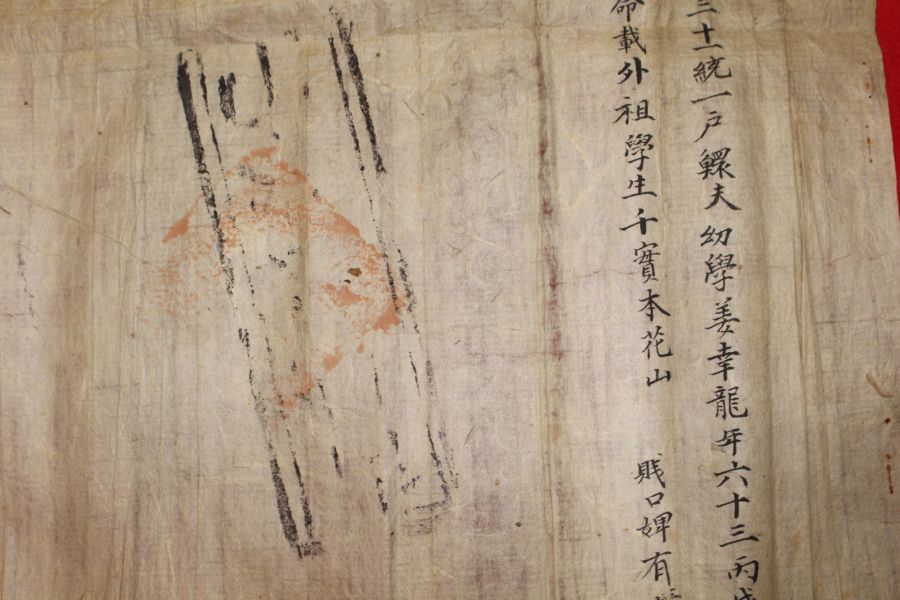 三十一統一戶鰥夫幼學姜幸龍年六十三丙戌
命載外祖學生千實本花山 賤口婢有